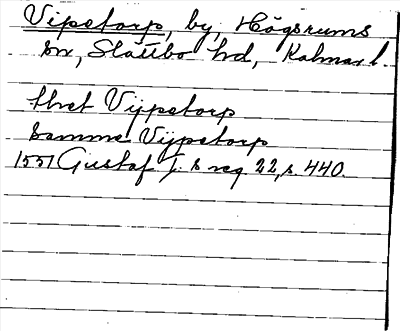 Vipetorp, by, Högsrums
sn, Slättbo hd, Kalmar l.
thet Vijpetorp
samme Vijpetorp
1551 Gustaf I:s reg 22, s. 440.